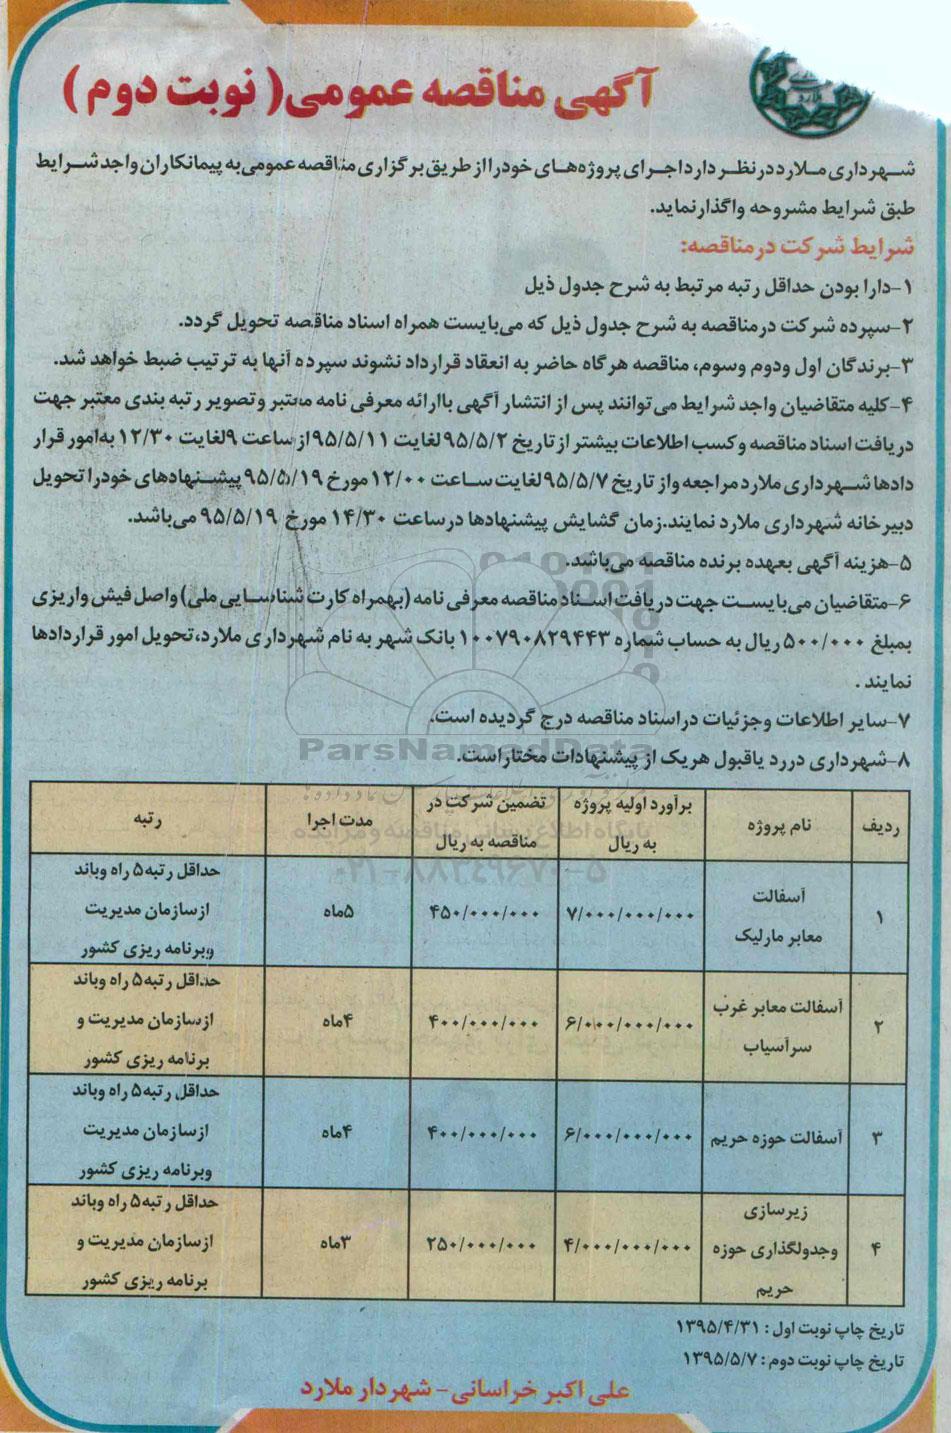 آگهی مناقصه عمومی( نوبت دوم )
ملارد
شهرداری ملارد در نظر دارد اجرای پروژه‌های خود را از طریق برگزاری مناقصه عمومی به پیمانکاران واجد شرایط
طبق شرایط مشروحه واگذار نماید.
شرایط شرکت در مناقصه:
۱-دارا بودن حداقل رتبه مرتبط به شرح جدول ذیل
۲-سپرده شرکت در مناقصه به شرح جدول ذیل که می‌بایست همراه اسناد مناقصه تحویل گردد.
۳-برندگان اول ودوم وسوم، مناقصه هرگاه حاضر به انعقاد قرارداد نشوند سپرده آنها به ترتیب ضبط خواهد شد.
۴-کلیه متقاضیان واجد شرایط می‌توانند پس از انتشار آگهی باارائه معرفی نامه معتبر وتصویر رتبه بندی معتبر جهت
دریافت اسناد مناقصه وکسب اطلاعات بیشتر از تاریخ ۹۵/۵/۲ لغایت ۹۵/۵/۱۱ از ساعت ۹ لغایت ۱۲/۳۰ به امور قرار
دادها شهرداری ملارد مراجعه واز تاریخ ۹۵/۵/۷ لغایت ساعت ۱۲/۰۰ مورخ ۹۵/۵/۱۹ پیشنهادهای خود را تحویل
دبیرخانه شهرداری ملارد نمایند.زمان گشایش پیشنهادها در ساعت ۱۴/۳۰ مورخ ۹۵/۵/۱۹ می‌باشد.
۵-هزینه آگهی بعهده برنده مناقصه می‌باشد.
۶-متقاضیان می‌بایست جهت دریافت اسناد مناقصه معرفی نامه (بهمراه کارت شناسایی ملی) واصل فیش واریزی
بمبلغ ۵۰۰/۰۰۰ ریال به حساب شماره ۱۰۰۷۹۰۸۲۹۴۴۳ بانک شهر به نام شهرداری ملارد،تحویل امور قراردادها
نمایند .
۷-سایر اطلاعات وجزئیات در اسناد مناقصه درج گردیده است.
ParsNamadData
۸-شهرداری در رد یاقبول هریک از پیشنهادات مختار است.
ردیف | نام پروژه | برآورد اولیه پروژه به ریال | تضمین شرکت در مناقصه به ریال | مدت اجرا | رتبه
پایگاه اطلاع رسانی مناقصه و مزایده
۰۲۱-۸۸۳۴۹۶۷۰-۵
۱ | آسفالت معابر مارلیک | ۷/۰۰۰/۰۰۰/۰۰۰ | ۴۵۰/۰۰۰/۰۰۰ | ۵ماه | حداقل رتبه۵ راه وباند ازسازمان مدیریت وبرنامه ریزی کشور
۲ | آسفالت معابر غرب سرآسیاب | ۶/۰۰۰/۰۰۰/۰۰۰ | ۴۰۰/۰۰۰/۰۰۰ | ۴ماه | حداقل رتبه۵ راه وباند ازسازمان مدیریت و برنامه ریزی کشور
۳ | آسفالت حوزه حریم | ۶/۰۰۰/۰۰۰/۰۰۰ | ۴۰۰/۰۰۰/۰۰۰ | ۴ماه | حداقل رتبه۵ راه وباند ازسازمان مدیریت وبرنامه ریزی کشور
۴ | زیرسازی وجدولگذاری حوزه حریم | ۴/۰۰۰/۰۰۰/۰۰۰ | ۲۵۰/۰۰۰/۰۰۰ | ۳ماه | حداقل رتبه۵ راه وباند ازسازمان مدیریت و برنامه ریزی کشور
تاریخ چاپ نوبت اول : ۱۳۹۵/۴/۳۱
تاریخ چاپ نوبت دوم : ۱۳۹۵/۵/۷
علی اکبر خراسانی- شهردار ملارد